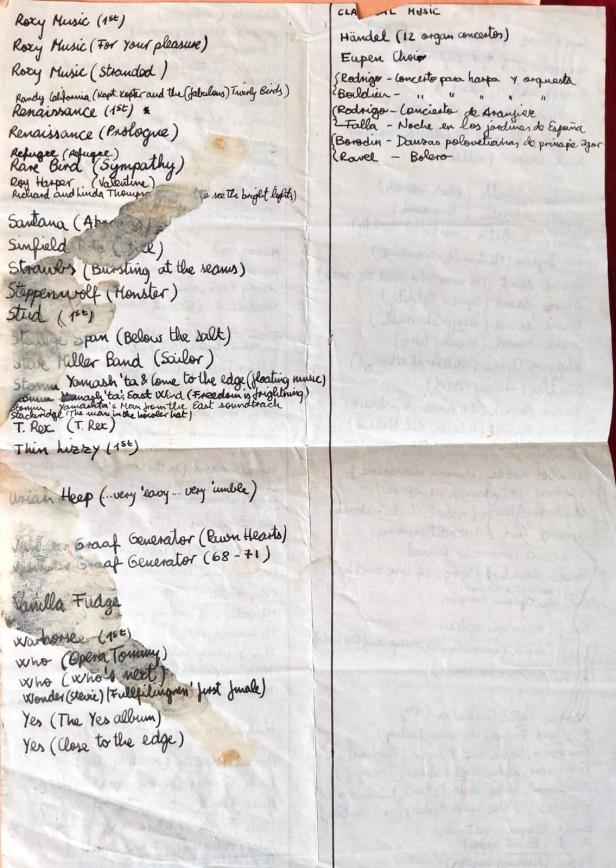 Roxy Music (1st)
Roxy Music (For your pleasure)
Roxy Music (Stranded)
Randy California (Kapt. Kopter and the (fabulous) Twirly Birds)
Renaissance (1st) *
Renaissance (Prologue)
Refugee (Refugee)
Rare Bird (Sympathy)
Roy Harper (Valentine)
Richard and Linda Thomps to see the bright lights)
Santana (Ab
Sinfield
Strawbs (Bursting at the seams)
Steppenwolf (Monster)
Stud (1st)
Span (Below the salt)
Steve Miller Band (Sailor)
Stomu Yamash'ta & Come to the edge (floating music)
Stomu Yamash'ta's East Wind (Freedom is frightning)
Stomu Yamashta's Man from the East soundtrack
Stackridge (The man in the bowler hat)
T. Rex (T. Rex)
Thin Lizzy (1st)
Uriah Heep (...very 'eavy... very 'umble)
Graaf Generator (Pawn Hearts)
Graaf Generator (68-71)
Vanilla Fudge
Warhorse (1st)
Who (Opera Tommy)
Who (Who's next)
Wonder (Stevie) (Fullfilingness' first finale)
Yes (The Yes album)
Yes (Close to the edge)
CLA AL MUSIC
Händel (12 organ concertos)
Eupen Choir
Rodrigo - Concerto para harpa y orquesta
Boildieu - " " " "
Rodrigo - Concierto de Aranjuez
Falla - Noche en los jardines de España
Borodin - Danzas polovetsianas de principe Igor
Ravel - Bolero